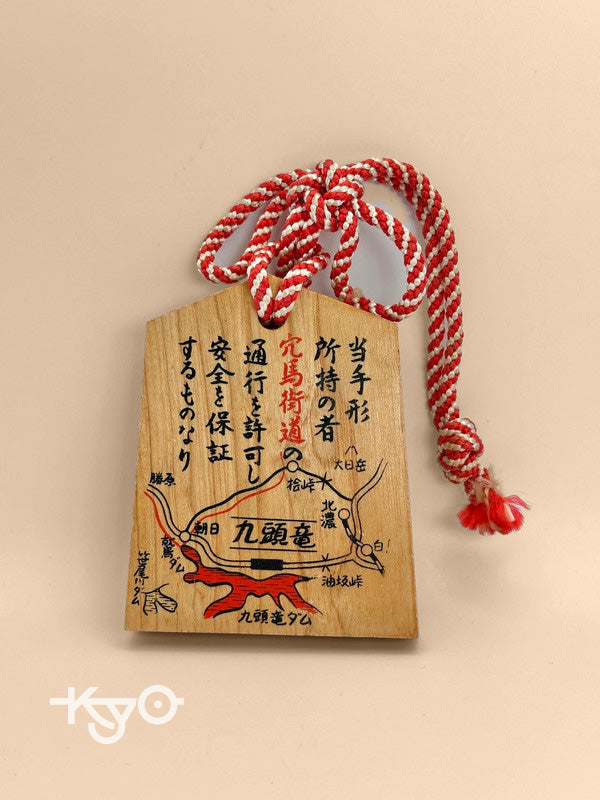 当手形
所持の者
穴馬街道の
通行を許可し
安全を保証
するものなり
大日岳
桧峠
北濃
勝原
朝日
九頭竜
白
油坂峠
九頭竜ダム
笹尾川ダム
KyO